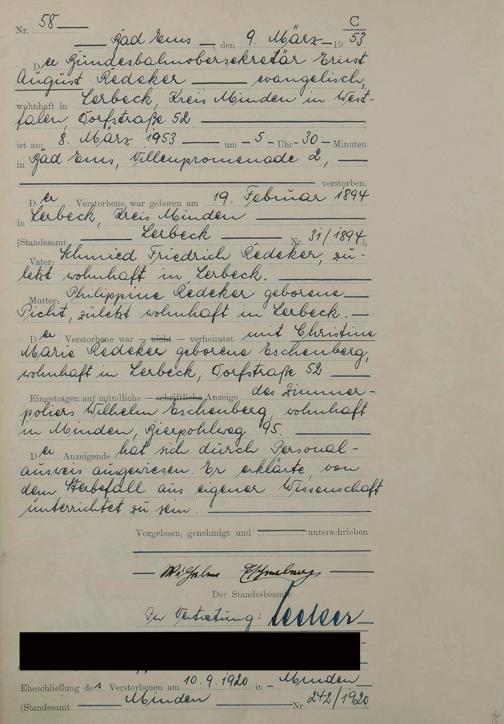 Nr. 58 C
Bad Ems, den 9. März 1953
Der Bundesbahnobersekretär Ernst
August Redeker evangelisch,
wohnhaft in Lerbeck, Kreis Minden in West-
falen, Dorfstraße 52
ist am 8. März 1953 um 5 Uhr 30 Minuten
in Bad Ems, Villenpromenade 2,
verstorben.
Der Verstorbene war geboren am 19. Februar 1894
in Lerbeck, Kreis Minden
(Standesamt Lerbeck Nr. 31/1894)
Vater: Schmied Friedrich Redeker, zu-
letzt wohnhaft in Lerbeck.
Mutter: Philippine Redeker geborene
Picht, zuletzt wohnhaft in Lerbeck.
Der Verstorbene war – nicht – verheiratet mit Christine
Marie Redeker geborene Eschenberg,
wohnhaft in Lerbeck, Dorfstraße 52
Eingetragen auf mündliche – schriftliche Anzeige des Zimmer-
poliers Wilhelm Eschenberg, wohnhaft
in Minden, Bierpohlweg 95.
Der Anzeigende hat sich durch Personal-
ausweis ausgewiesen. Er erklärte, von
dem Sterbefall aus eigener Wissenschaft
unterrichtet zu sein.
Vorgelesen, genehmigt und unterschrieben
Wilhelm Eschenberg
Der Standesbeamte
In Vertretung:
Eheschließung des Verstorbenen am 10.9.1920 in Minden
(Standesamt Minden Nr. 242/1920